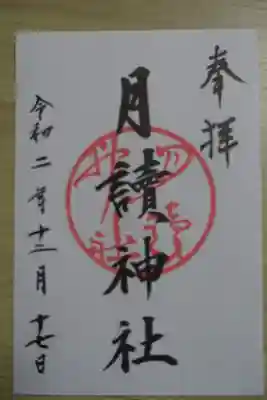 奉拝
月讀神社
令和二年十二月十七日